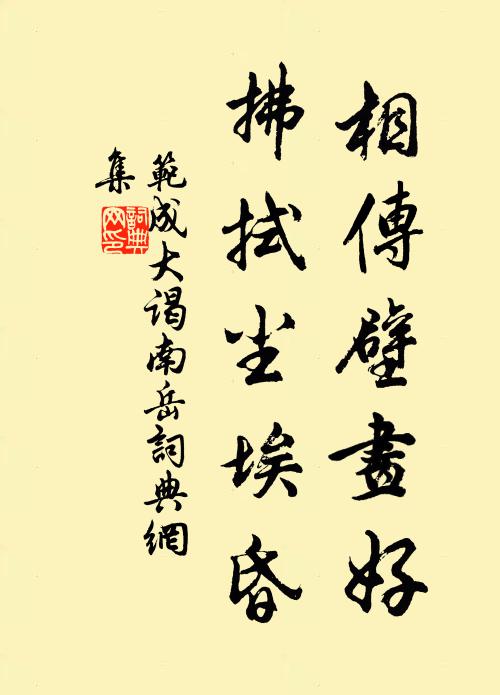 相傳壁畫好
拂拭尘埃昏
範成大谒南岳詞典網
集
詞典
网印